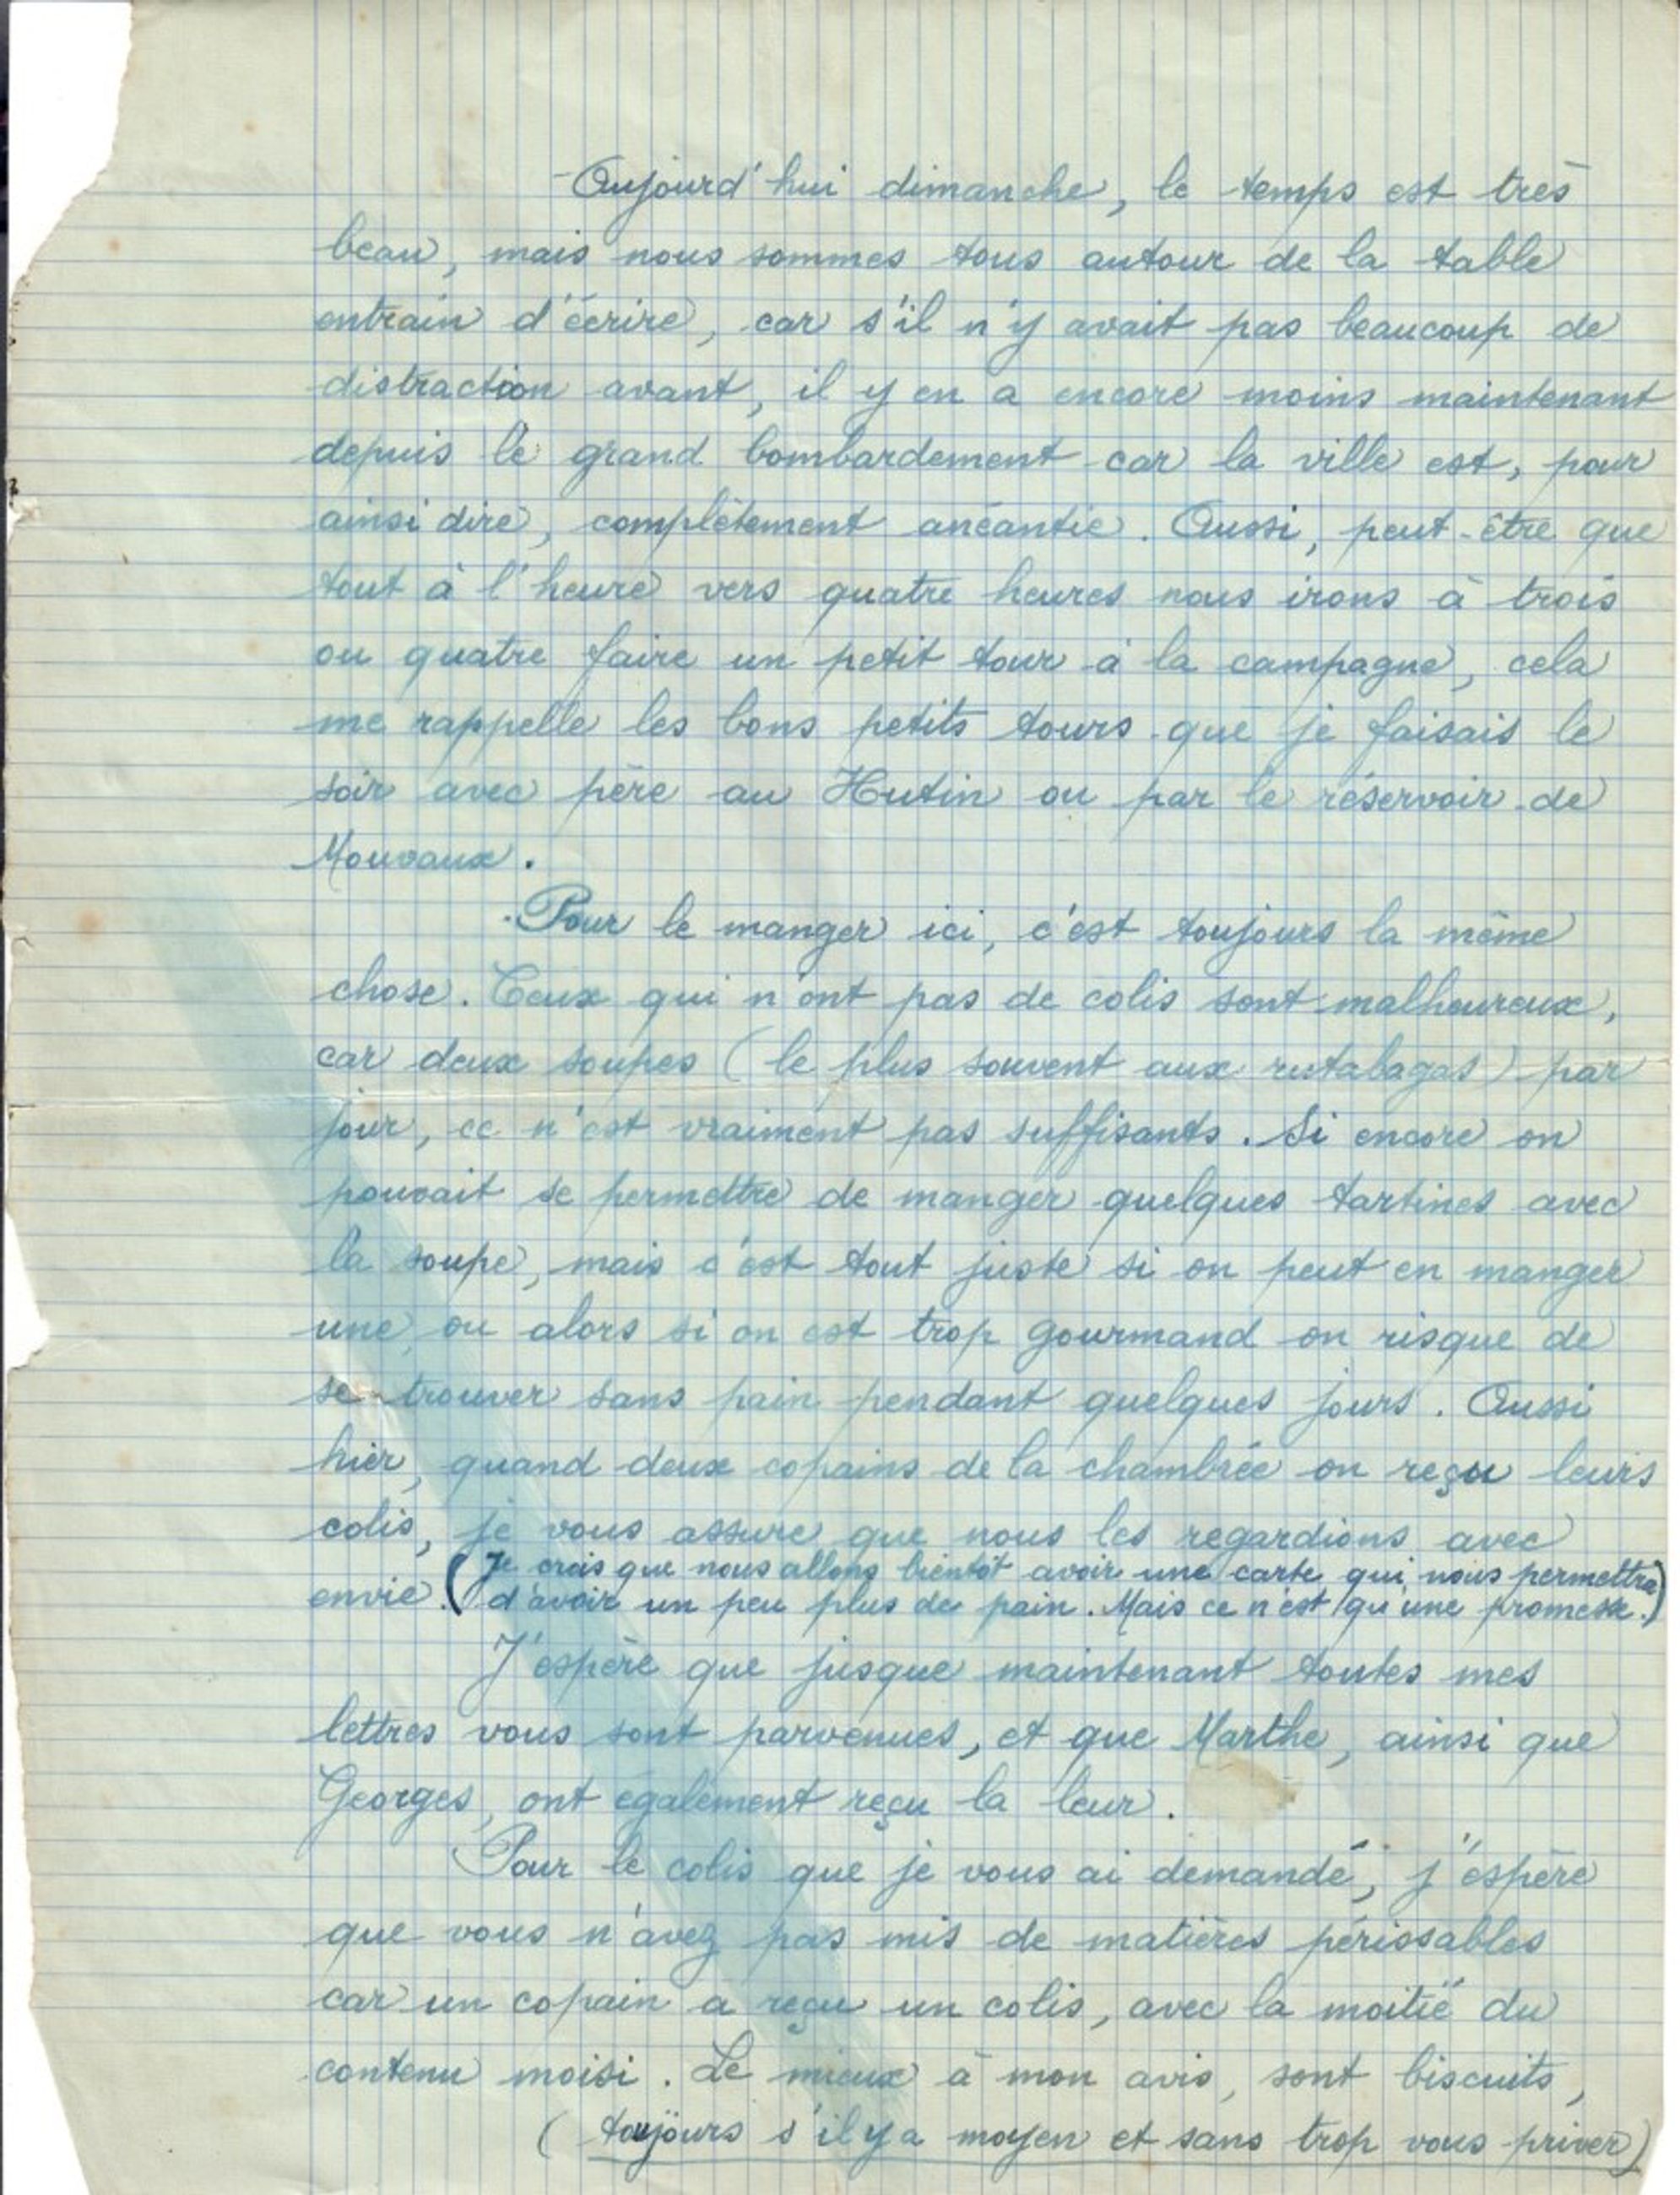 Aujourd'hui dimanche, le temps est très
beau, mais nous sommes tous autour de la table
entrain d'écrire, car s'il n'y avait pas beaucoup de
distraction avant, il y en a encore moins maintenant
depuis le grand bombardement car la ville est, pour
ainsi dire, complètement anéantie. Aussi, peut-être que
tout à l'heure vers quatre heures nous irons à trois
ou quatre faire un petit tour à la campagne, cela
me rappelle les bons petits tours que je faisais le
soir avec père au Hutin ou par le réservoir de
Mouvaux.
Pour le manger ici, c'est toujours la même
chose. Ceux qui n'ont pas de colis sont malheureux,
car deux soupes (le plus souvent aux rutabagas) par
jour, ce n'est vraiment pas suffisants. Si encore on
pouvait se permettre de manger quelques tartines avec
la soupe, mais c'est tout juste si on peut en manger
une, ou alors si on est trop gourmand on risque de
se trouver sans pain pendant quelques jours. Aussi
hier, quand deux copains de la chambrée on reçu leurs
colis, je vous assure que nous les regardions avec
envie. (Je crois que nous allons bientôt avoir une carte qui nous permettra
d'avoir un peu plus de pain. Mais ce n'est qu'une promesse.)
J'espère que jusque maintenant toutes mes
lettres vous sont parvenues, et que Marthe, ainsi que
Georges, ont également reçu la leur.
Pour le colis que je vous ai demandé, j'espère
que vous n'avez pas mis de matières périssables
car un copain a reçu un colis, avec la moitié du
contenu moisi. Le mieux à mon avis, sont biscuits,
(toujours s'il y a moyen et sans trop vous priver)